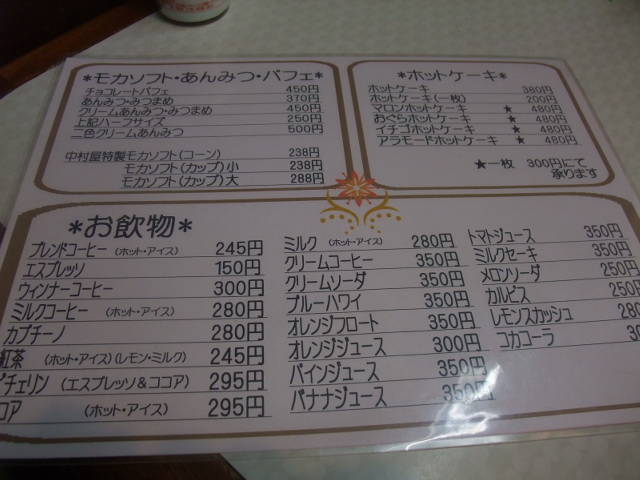 *モカソフト・あんみつ・パフェ*
チョコレートパフェ 450円
あんみつ・みつまめ 370円
クリームあんみつ・みつまめ 450円
上記ハーフサイズ 250円
二色クリームあんみつ 500円
中村屋特製モカソフト(コーン) 238円
モカソフト(カップ)小 238円
モカソフト(カップ)大 288円
*ホットケーキ*
ホットケーキ 380円
ホットケーキ(一枚) 200円
マロンホットケーキ ★ 480円
おぐらホットケーキ ★ 480円
イチゴホットケーキ ★ 480円
アラモードホットケーキ ★ 480円
★一枚 300円にて
承ります
*お飲物*
ブレンドコーヒー (ホット・アイス) 245円
エスプレッソ 150円
ウィンナーコーヒー 300円
ミルクコーヒー (ホット・アイス) 280円
カプチーノ 280円
紅茶 (ホット・アイス)(レモン・ミルク) 245円
チェリン (エスプレッソ&ココア) 295円
コア (ホット・アイス) 295円
ミルク (ホット・アイス) 280円
クリームコーヒー 350円
クリームソーダ 350円
ブルーハワイ 350円
オレンジフロート 350円
オレンジジュース 300円
パインジュース 350円
バナナジュース 350円
トマトジュース 350円
ミルクセーキ 350円
メロンソーダ 250円
カルピス 250円
レモンスカッシュ 280
コカコーラ